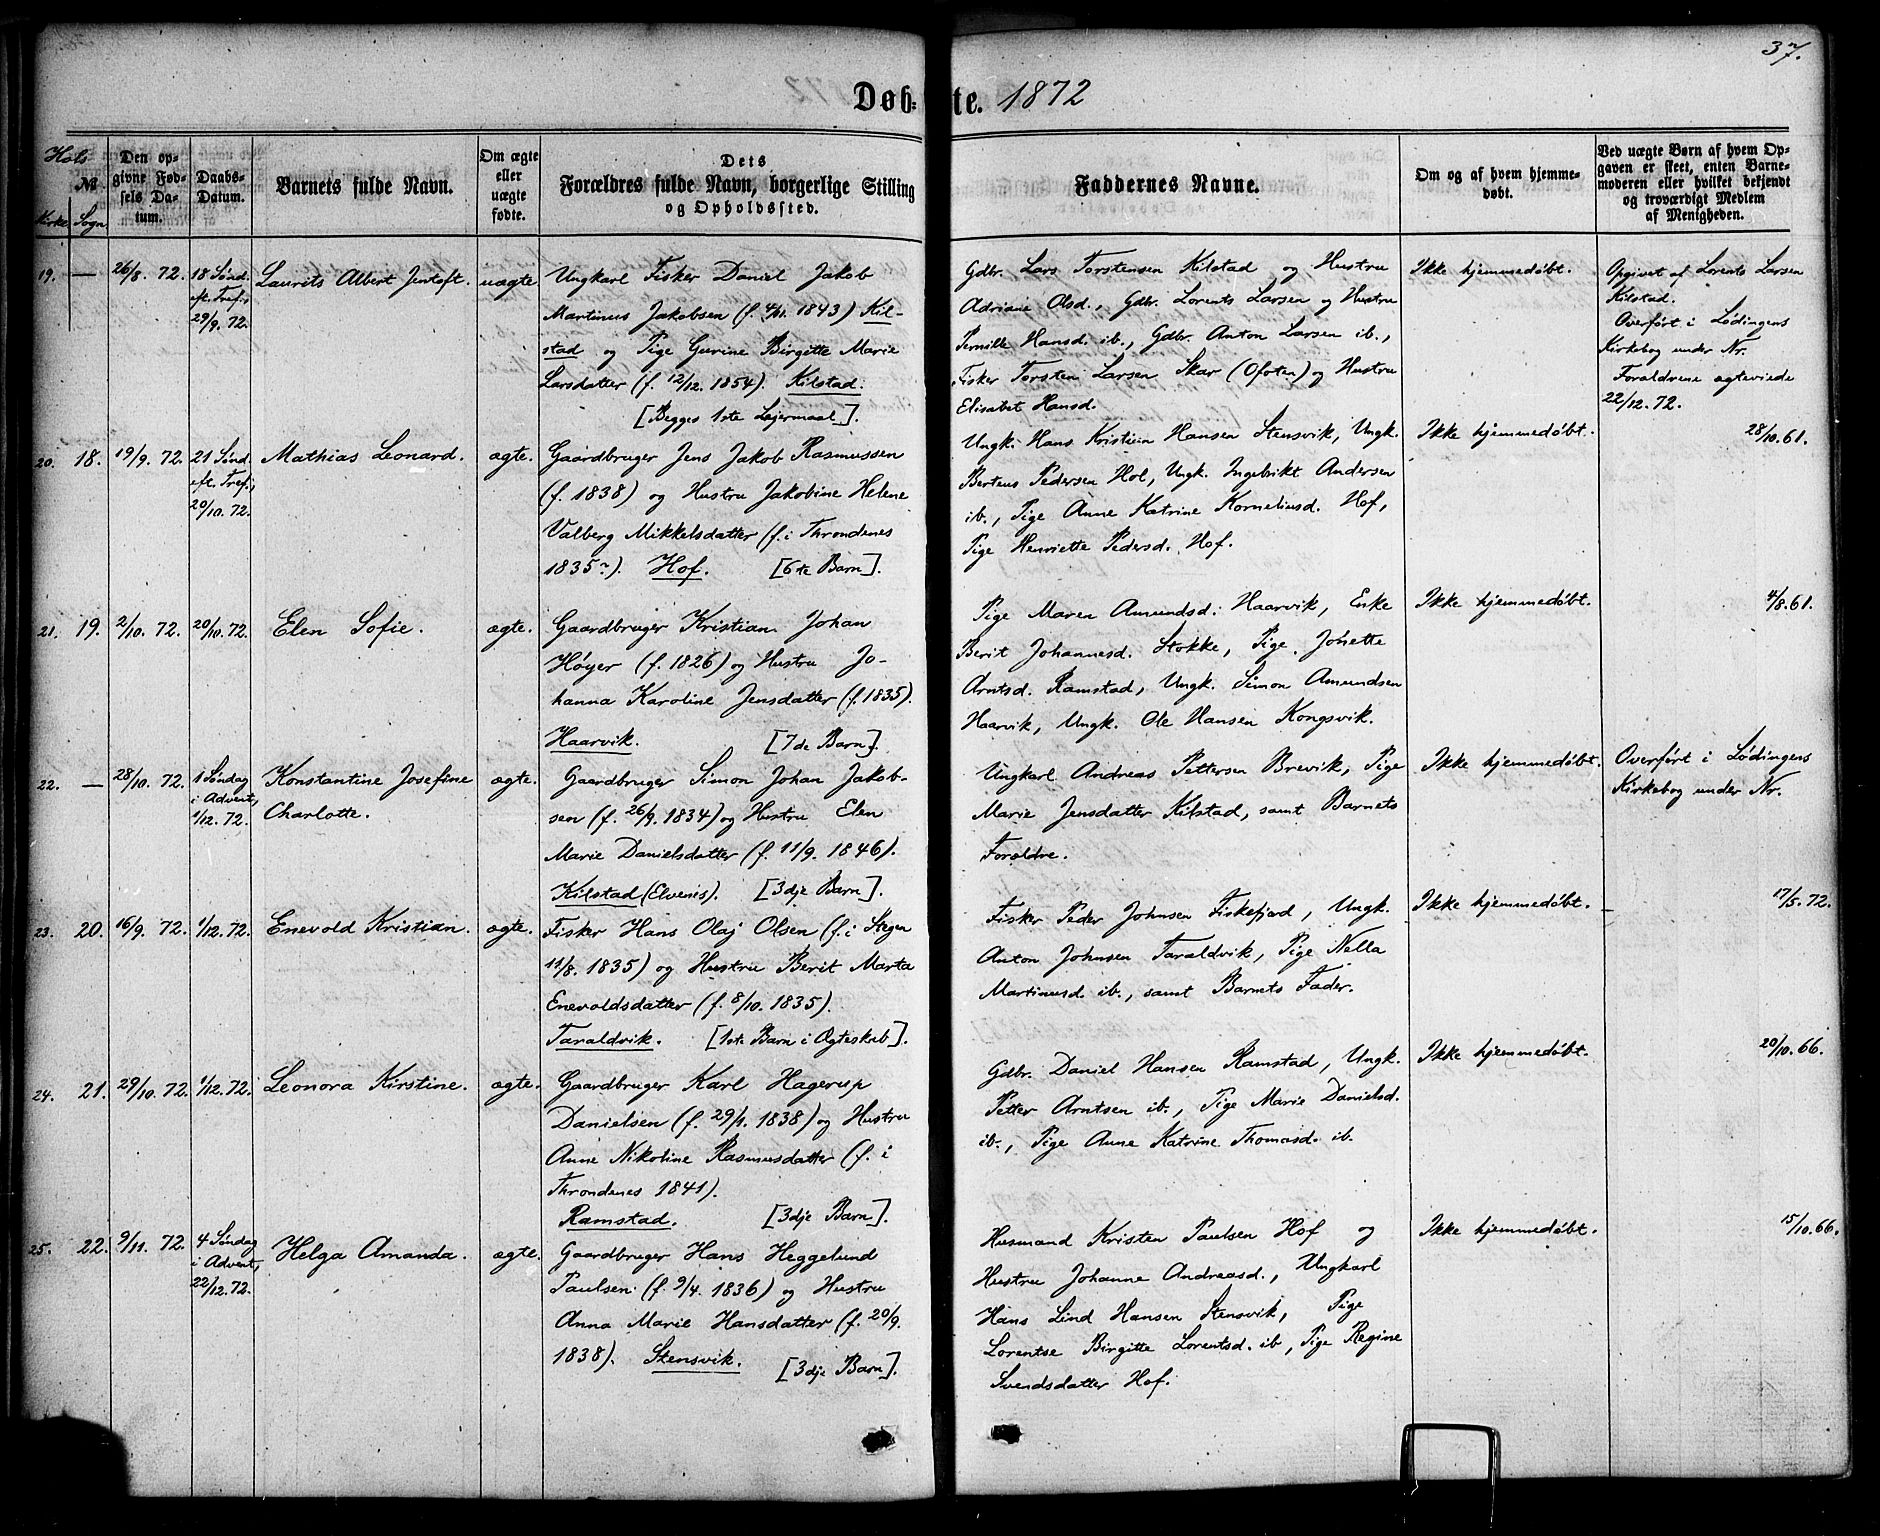 37.
Døb-
te. 1872
Hols
№
Kirke Sogn
Den op-
givne Fød-
sels Da-
tum.
Daabs-
Datum.
Barnets fulde Navn.
Om ægte
eller
uægte
fødte.
Dets
Forældres fulde Navn, borgerlige Stilling
og Opholdssted.
Faddernes Navne.
Om og af hvem hjemme-
døbt.
Ved uægte Børn af hvem Op-
gaven er skeet, enten Barne-
moderen eller hvilket bekjendt
og troværdigt Medlem
af Menigheden.
19. — 26/8. 72. 18 Sønd.
eft. Tref.,
29/9. 72.
Laurits Albert Jentoft. uægte
Ungkarl Fisker Daniel Jakob
Martinus Jakobsen (f. 4/11. 1843) Kil-
stad og Pige Gurine Birgitte Marie
Larsdatter (f. 12/12. 1854). Kilstad.
[Begges 1ste Lejermaal].
Gdbr. Lars Torstensen Kilstad og Hustru
Adriane Olsd., Gdbr. Lorents Larsen og Hustru
Pernille Hansd. ib., Gdbr. Anton Larsen ib.,
Fisker Torsten Larsen Skar (Ofoten) og Hustru
Elisabet Hansd.
Ikke hjemmedøbt.
Opgivet af Lorents Larsen
Kilstad.
Overført i Lødingens
Kirkebog under Nr.
Forældrene ægteviede
22/12. 72.
20. 18. 19/9. 72. 21 Sønd.
eft. Tref.,
20/10. 72.
Mathias Leonard. ægte.
Gaardbruger Jens Jakob Rasmussen
(f. 1838) og Hustru Jakobine Helene
Valberg Mikkelsdatter (f. i Throndenes
1835?). Hof. [6te Barn].
Ungk. Hans Kristian Hansen Stensvik, Ungk.
Berteus Pedersen Hol, Ungk. Ingebrikt Andersen
ib., Pige Anne Katrine Korneliusd. Hof,
Pige Henriette Pedersd. Hof.
Ikke hjemmedøbt.
28/10. 61.
21. 19. 2/10. 72. 20/10. 72. Elen Sofie. ægte.
Gaardbruger Kristian Johan
Høyer (f. 1826) og Hustru Jo-
hanna Karoline Jensdatter (f. 1835).
Haarvik. [7de Barn].
Pige Maren Amundsd. Haarvik, Enke
Berit Johannesd. Stokke, Pige Jonette
Arntsd. Ramstad, Ungk. Simon Amundsen
Haarvik, Ungk. Ole Hansen Kongsvik.
Ikke hjemmedøbt.
4/8. 61.
22. — 28/10. 72. 1 Søndag
i Advent,
1/12. 72.
Konstantine Josefine
Charlotte.
ægte.
Gaardbruger Simon Johan Jakob-
sen (f. 26/9. 1834) og Hustru Elen
Marie Danielsdatter (f. 11/9. 1846).
Kilstad (Elvenes). [3dje Barn].
Ungkarl Andreas Pettersen Brevik, Pige
Marie Jensdatter Kilstad, samt Barnets
Forældre.
Ikke hjemmedøbt.
Overført i Lødingens
Kirkebog under Nr.
23. 20. 16/9. 72. 1/12. 72. Enevold Kristian. ægte.
Fisker Hans Olaj Olsen (f. i Stegen
11/8. 1835) og Hustru Berit Marta
Enevoldsdatter (f. 8/10. 1835).
Taraldvik. [1ste Barn i Ægteskab].
Fisker Peder Johnsen Fiskefjord, Ungk.
Anton Johnsen Taraldvik, Pige Nella
Martinusd. ib., samt Barnets Fader.
Ikke hjemmedøbt.
17/5. 72.
24. 21. 29/10. 72. 1/12. 72. Leonora Kirstine. ægte.
Gaardbruger Karl Hagerup
Danielsen (f. 29/1. 1838) og Hustru
Anne Nikoline Rasmusdatter (f. i
Throndenes 1841).
Ramstad. [3dje Barn].
Gdbr. Daniel Hansen Ramstad, Ungk.
Petter Arntsen ib., Pige Marie Danielsd.
ib., Pige Anne Katrine Thomasd. ib.
Ikke hjemmedøbt.
20/10. 66.
25. 22. 9/11. 72. 4 Søndag
i Advent,
22/12. 72.
Helga Amanda. ægte.
Gaardbruger Hans Heggelund
Paulsen (f. 9/4. 1836) og Hustru
Anna Marie Hansdatter (f. 20/9.
1838). Stensvik. [3dje Barn].
Husmand Kristen Paulsen Hof og
Hustru Johanne Andreasd., Ungkarl
Hans Lind Hansen Stensvik, Pige
Lorentse Birgitte Lorentsd. ib, Pige Regine
Svendsdatter Hof.
Ikke hjemmedøbt.
15/10. 66.